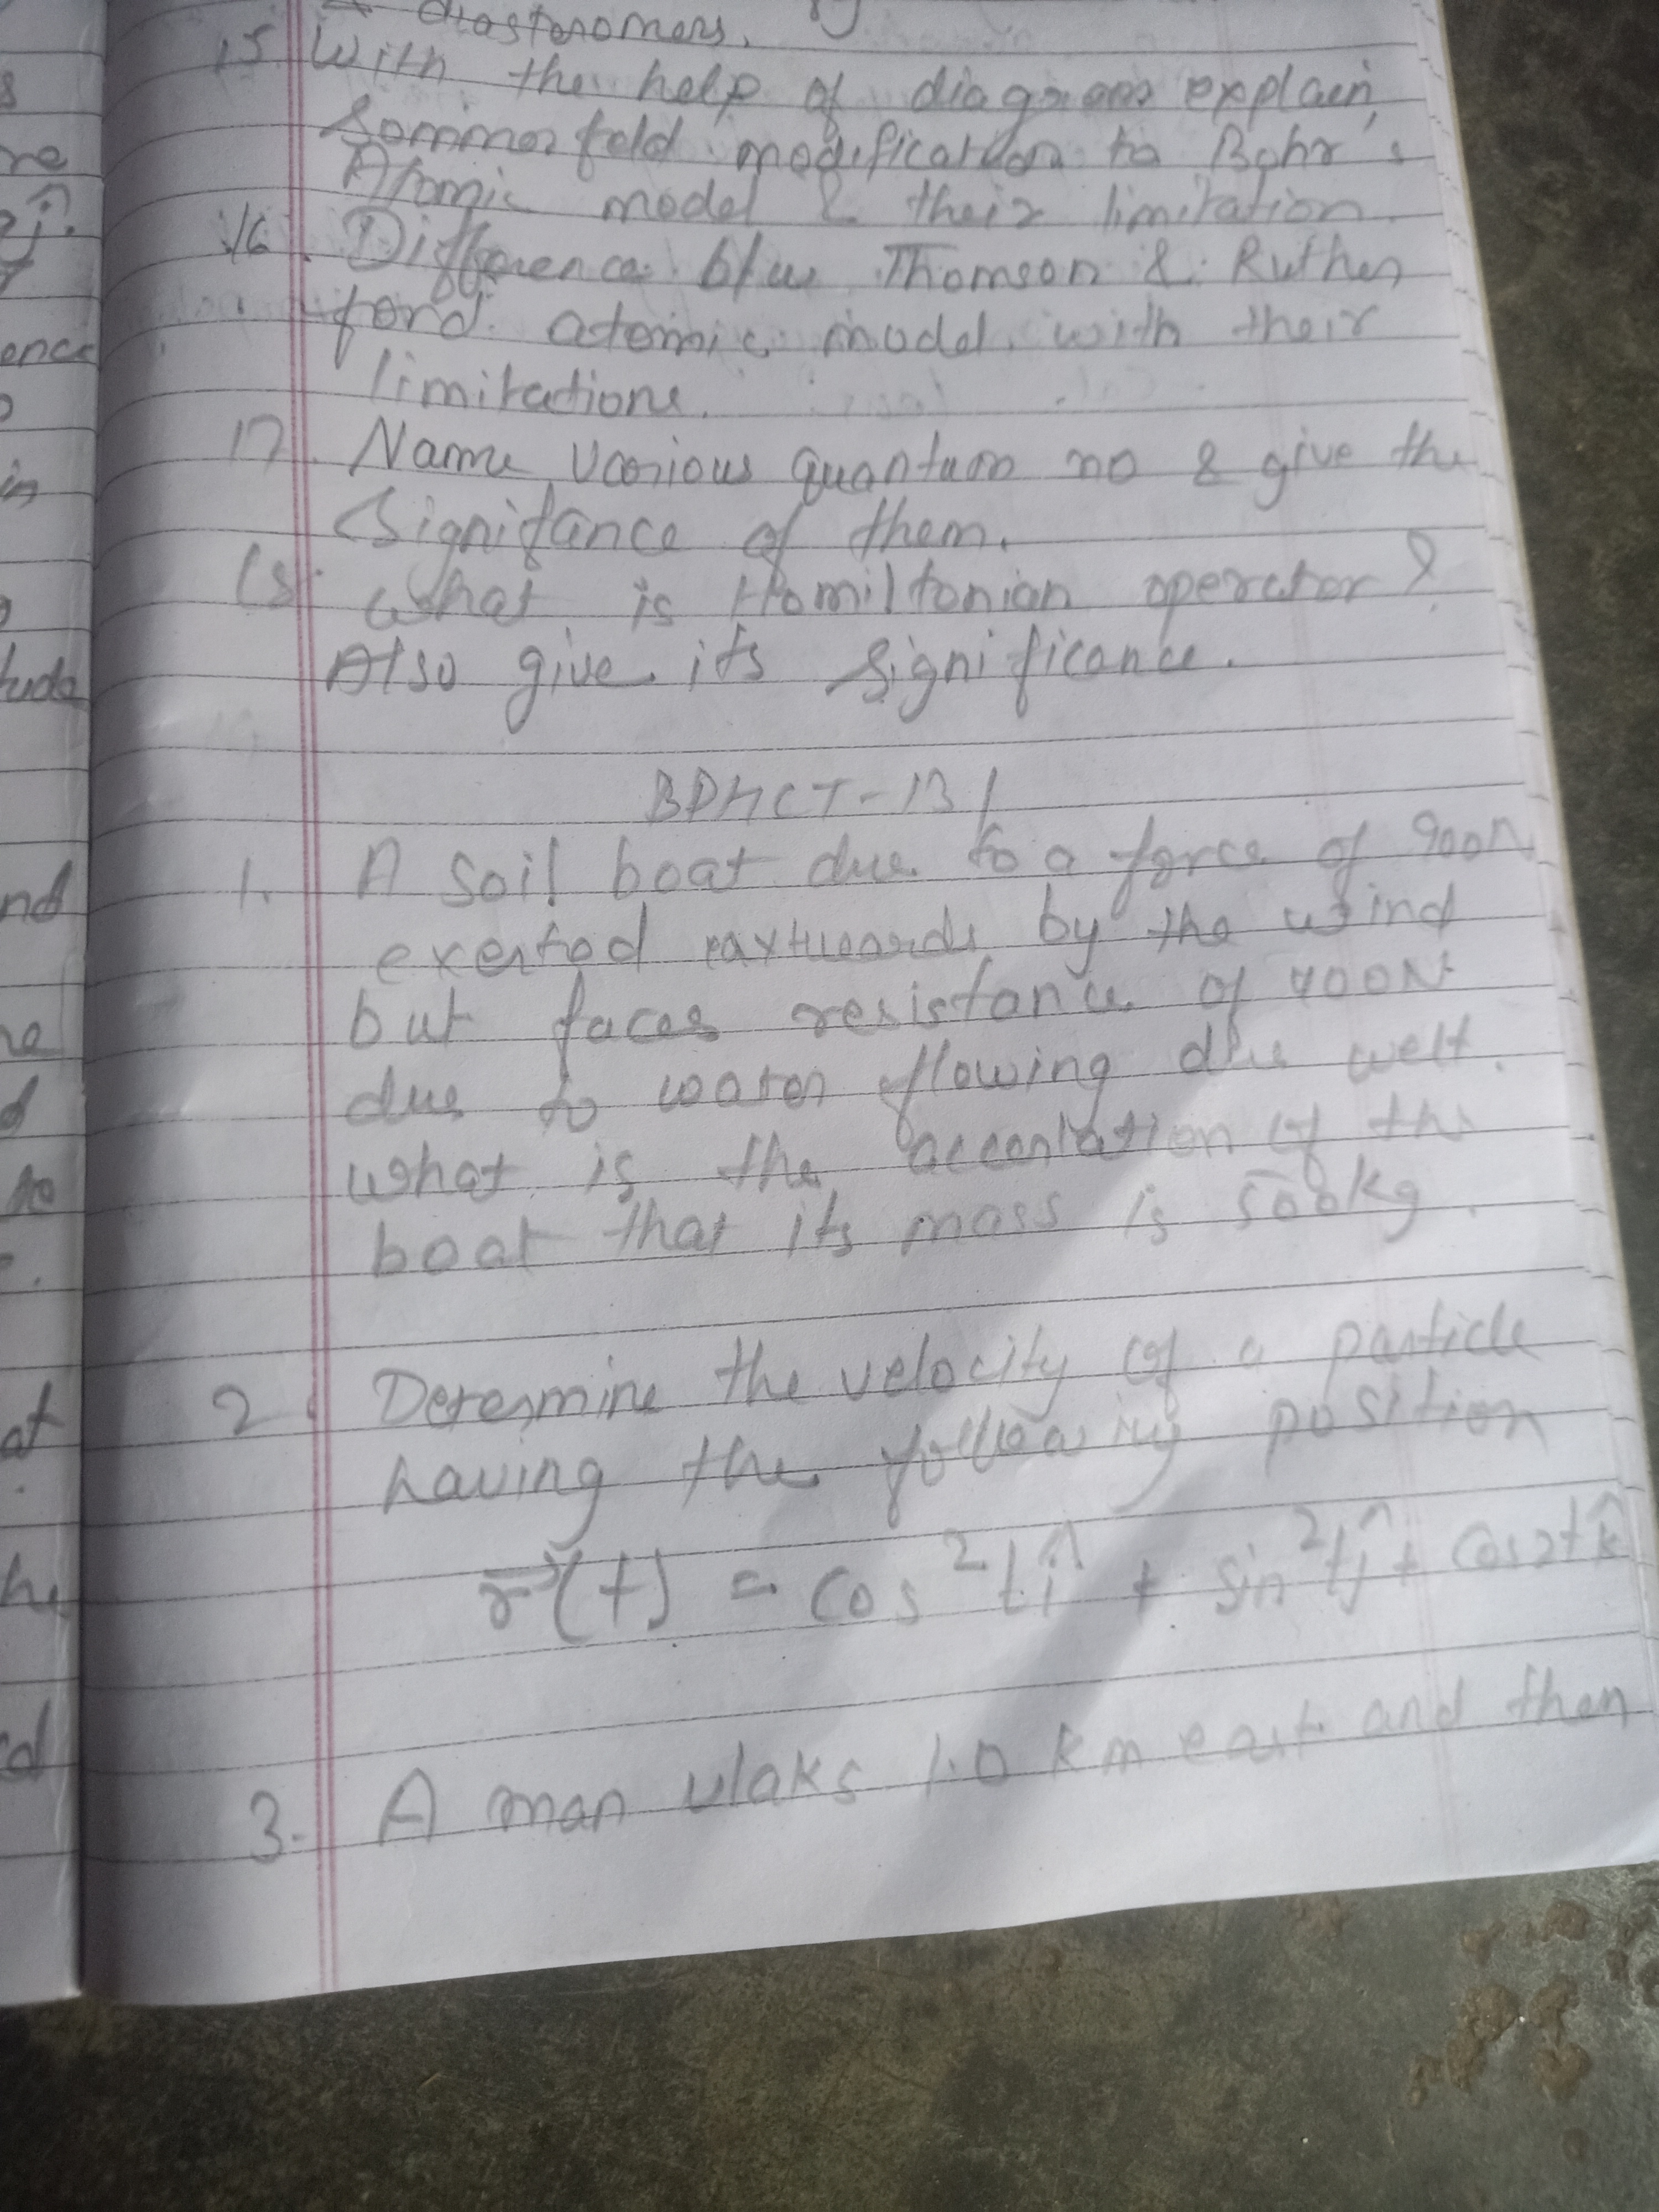 diasteromers.
15. With the help of diagram explain
Sommerfeld modification to Bohr's
Atomic model & their limitation.
16. Difference b/w Thomson & Ruther
ford atomic model with their
limitations.
17. Name various quantum no & give the
Signifance of them.
18. What is Hamiltonian operator ?
Also give its significance.
BPHCT-131
1. A soil boat due to a force of 900N
exerted eastwards by the wind
but faces resistance of 400N
due to water flowing due west.
what is the
boat that its mass is 500kg.
2. Determine the velocity of a particle
having the following position
r⃗(t) = cos²t î + sin²t ĵ + cos2t k̂
3. A man wlaks 1.0 km east and then
ence
in
tude
nd
at